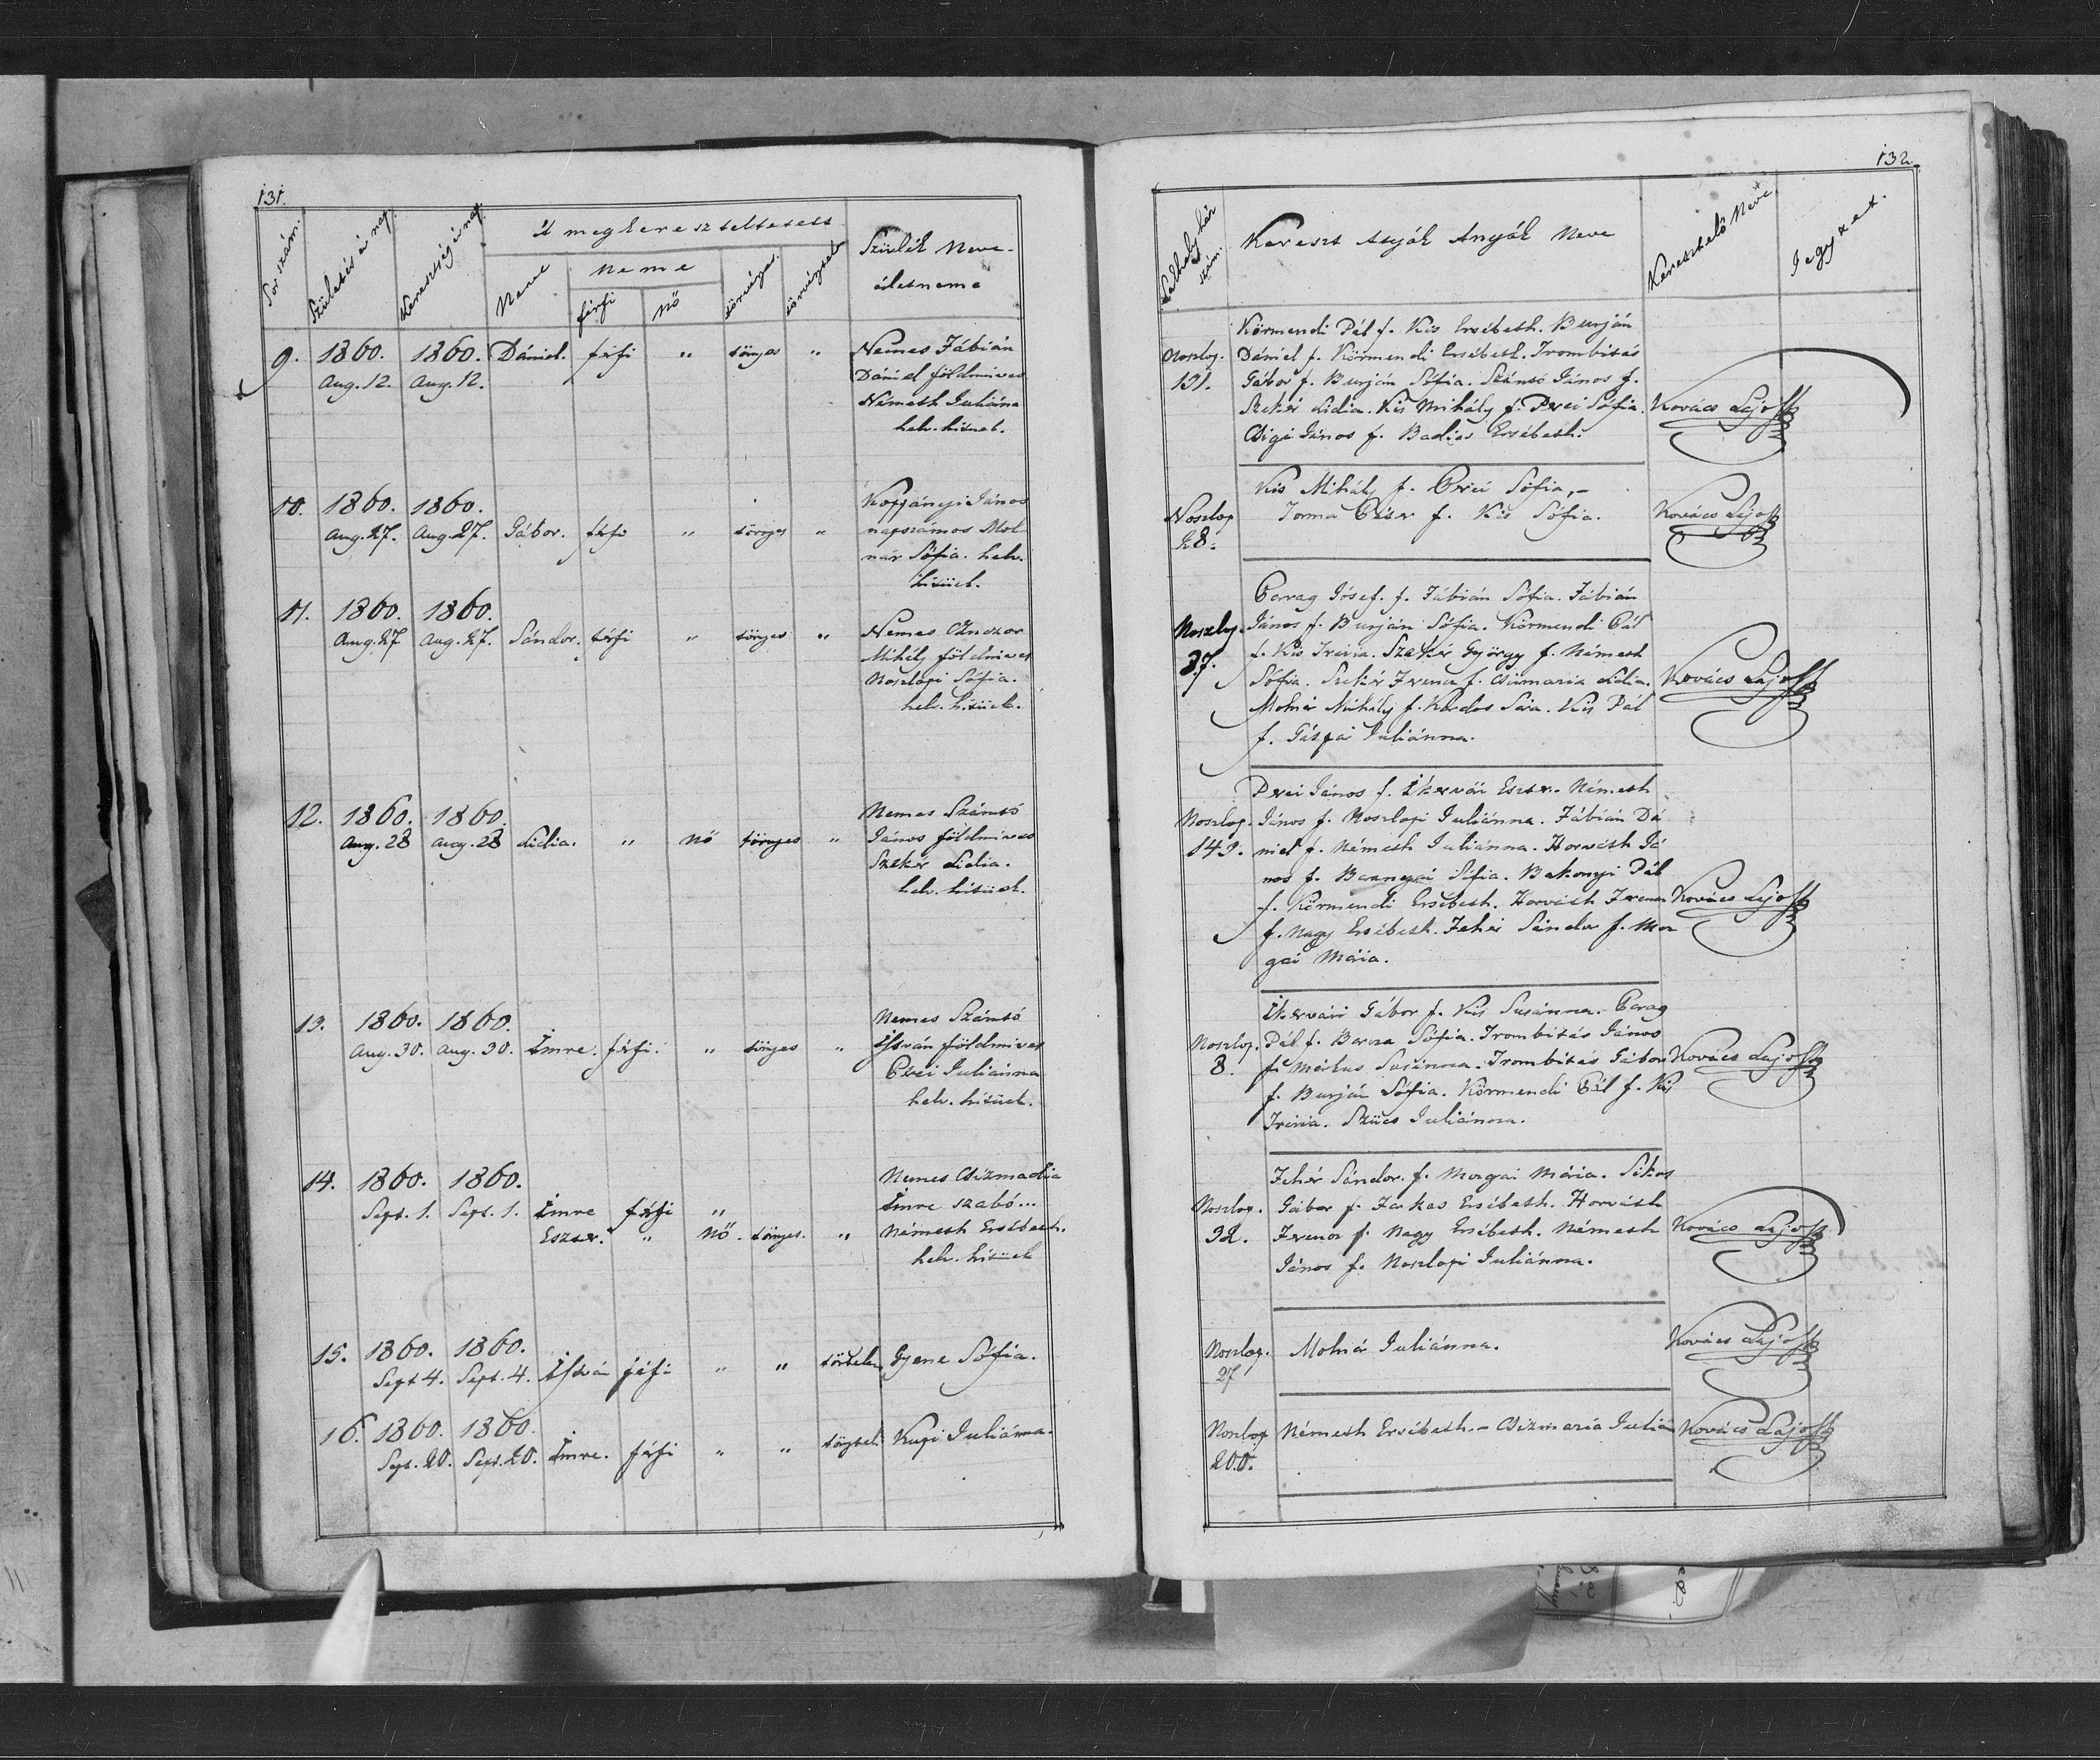 131.
Sor szám.
Születés és nap.
Keresztség és nap.
A megkereszteltetett
Neve
neme
férfi
nő
törvényes.
törvénytel.
Szülék neve-
életneme
9.
1860.
Aug. 12.
1860.
Aug. 12.
Dániel.
férfi
„
törvyes
„
Nemes Fábián
Dániel földmives
Németh Juliána
helv. hitüek.
10.
1860.
Aug. 27.
1860.
Aug. 27.
Gábor.
férfi
„
törvyes
„
Koppányi János
napszámos Mol
nár Sófia. helv.
hitüek.
11.
1860.
Aug. 27
1860.
Aug. 27.
Sándor.
férfi
„
törvyes
„
Nemes
Mihály földmives
Noszlopi Sófia.
helv. hitüek.
12.
1860.
Aug. 28
1860.
Aug. 28
Lidia.
„
nő
törvyes
„
Nemes Szántó
János földmives
Szekér Lidia.
helv. hitüek.
13.
1860.
Aug. 30.
1860.
Aug. 30.
Imre.
férfi.
„
törvyes
„
Nemes Szántó
István földmives
Pérei Juliánna
helv. hitüek.
14.
1860.
Sept. 1.
1860.
Sept. 1.
Imre
férfi
„
Eszter.
„
nő.
törvyes.
„
Nemes Csizmadia
Imre szabó...
Németh Ersébeth.
helv. hitüek
15.
1860.
Sept 4.
1860.
Sept. 4.
István
férfi
„
„
törtelen
Gyene Sófia.
16.
1860.
Sept. 20.
1860.
Sept. 20.
Imre.
férfi
„
„
törvytel.
Kupi Juliánna.
132.
Lakhely ház
szám.
Kereszt Atyák Anyák Neve
Keresztelő Neve
Jegyzet.
Noszlop.
131.
Körmendi Pál f. Kis Ersébeth. Burján
Dániel f. Körmendi Ersébeth. Trombitás
Gábor f. Burján Sófia. Szántó János f.
Szekér Lidia. Kis Mihály f. Perei Sófia.
Csigi János f. Badics Ersébeth.
Kovács Lajos
Noszlop
28.
Kis Mihály f. Perei Sófia,-
Torma f. Kis Sófia.
Kovács Lajos
Noszlop.
37.
Parag Jósef. f. Fábián Sófia. Fábián
János f. Burján Sófia. Körmendi Pál
f. Kis Treisia. Szekér György f. Németh
Sófia. Szekér Ferencz f. Csizmazia Lidia.
Molnár Mihály f. Kardos Sára. Kis Pál
f. Gáspár Juliánna.
Kovács Lajos
Noszlop.
143.
Perei János f. Ikervári Eszter. Németh
János f. Noszlopi Juliánna. Fábián Dá
niel f. Németh Juliánna. Horváth Já
nos f. Barnyai Sófia. Bakonyi Pál
f. Körmendi Ersébeth. Horváth Ferencz
f. Nagy Ersébeth. Fehér Sándor f. Mor
gai Mária.
Kovács Lajos
Noszlop.
8.
Ikervári Gábor f. Kis Susánna. Parag
Pál f. Barcza Sófia. Trombitás János
f. Márkus Susánna. Trombitás Gábor
f. Burján Sófia. Körmendi Pál f. Kis
Treisia. Szücs Juliánna.
Kovács Lajos
Noszlop.
32.
Fehér Sándor. f. Morgai Mária. Sikos
Gábor f. Farkas Ersébeth. Horváth
Ferencz f. Nagy Ersébeth. Németh
János f. Noszlopi Juliánna.
Kovács Lajos
Noszlop.
27
Molnár Juliánna.
Kovács Lajos
Noszlop
200.
Németh Ersébeth.- Csizmazia Julián
Kovács Lajos